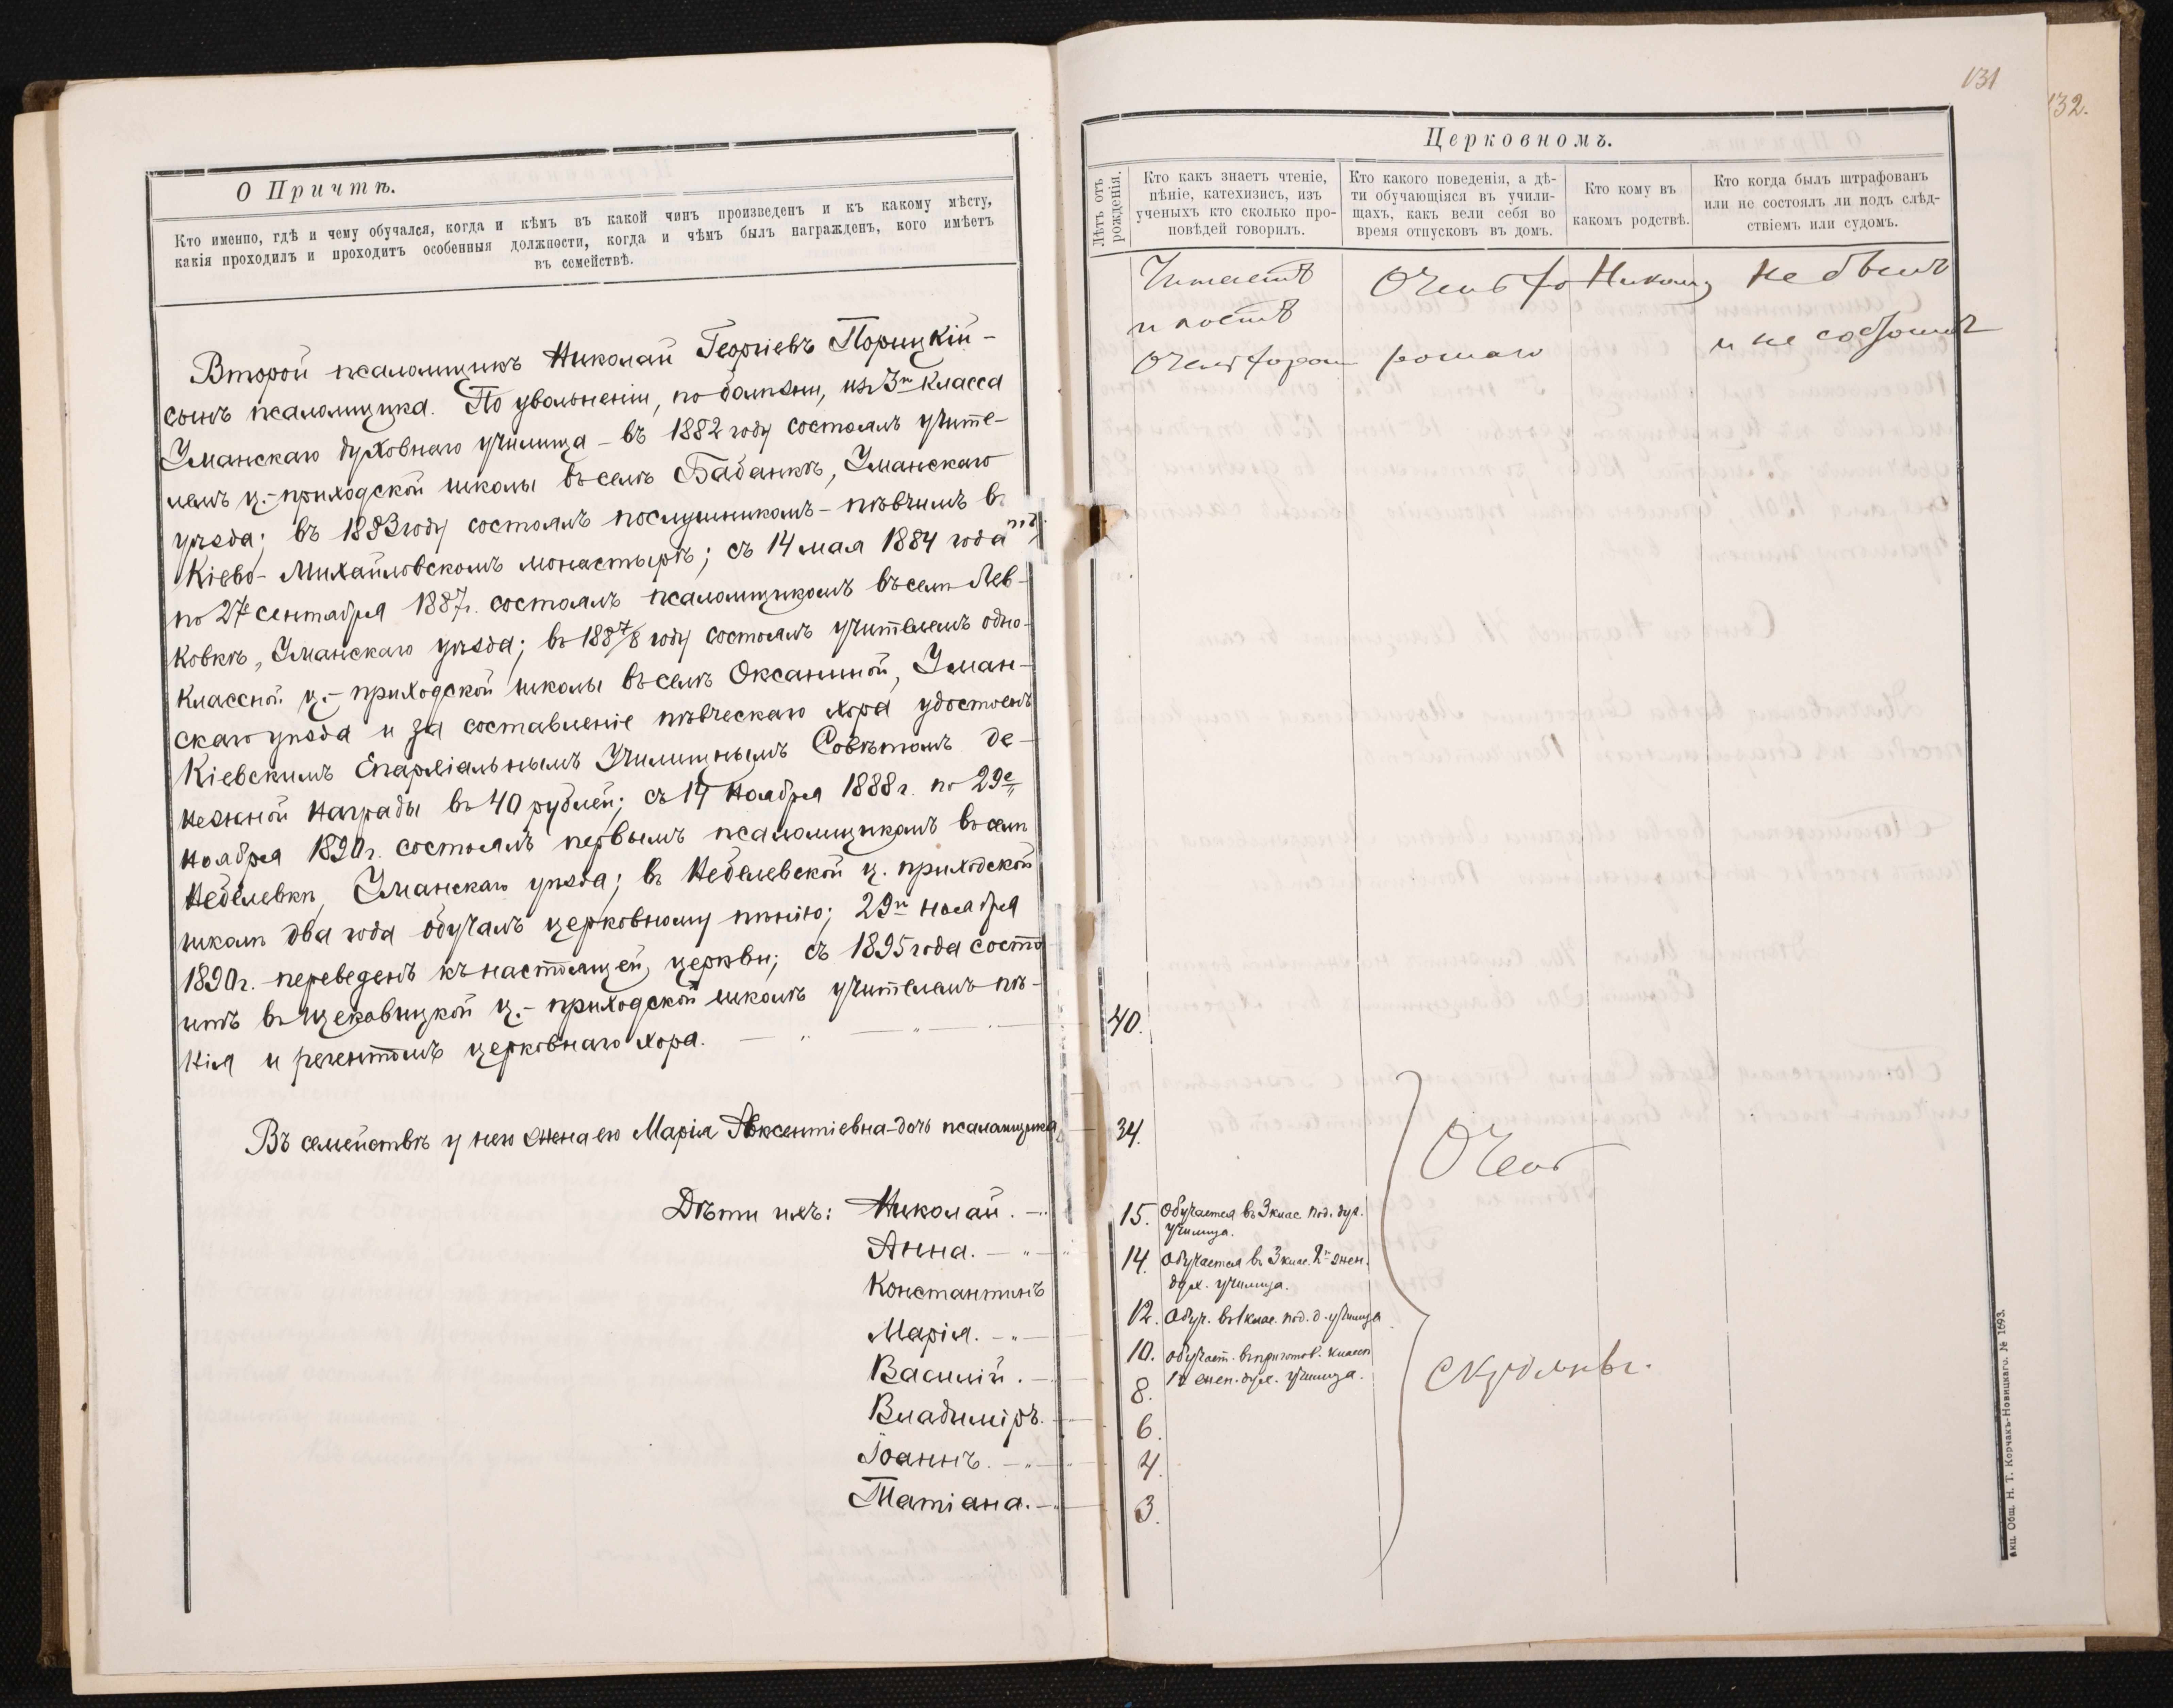 О Причтѣ.
Кто именно, гдѣ и чему обучался, когда и кѣмъ въ какой чинъ произведенъ и къ какому мѣсту,
какія проходилъ и проходитъ особенныя должности, когда и чѣмъ былъ награжденъ, кого имѣетъ
въ семействѣ.
Второй псаломщикъ Николай Георгіевъ Порицкій –
сынъ псаломщика. По увольненіи, по болѣзни, изъ 3го класса
Уманскаго духовнаго училища – въ 1882 году состоялъ учите-
лемъ ц.-приходской школы въ селѣ Бабанкѣ, Уманскаго
уѣзда; въ 1883 году состоялъ послушникомъ – пѣвчимъ въ
Кіево-Михайловскомъ монастырѣ; съ 14 мая 1884 года
по 27е сентября 1887 г. состоялъ псаломщикомъ въ селѣ Лев-
ковкѣ, Уманскаго уѣзда; въ 1887/8 году состоялъ учителемъ одно-
классной ц.-приходской школы въ селѣ Оксаниной, Уман-
скаго уѣзда и за составленіе пѣвческаго хора удостоенъ
Кіевскимъ Епархіальнымъ Училищнымъ Совѣтомъ де-
нежной награды въ 40 рублей; съ 17 ноября 1888 г. по 29е
ноября 1890 г. состоялъ первымъ псаломщикомъ въ селѣ
Небелевкѣ, Уманскаго уѣзда; въ Небелевской ц. приходской
школѣ два года обучалъ церковному пѣнію; 29го ноября
1890 г. переведенъ къ настоящей церкви; съ 1895 года состо-
итъ въ Щекавицкой ц.-приходской школѣ учителемъ пѣ-
нія и регентомъ церковнаго хора.
Въ семействѣ у него жена его Марія Авксентіевна – дочь псаломщика
Дѣти ихъ: Николай.
Анна.
Константинъ
Марія.
Василій.
Владиміръ.
Іоаннъ.
Татіана.
131
132.
Церковномъ.
Лѣтъ отъ рожденія.
Кто какъ знаетъ чтеніе,
пѣніе, катехизисъ, изъ
ученыхъ кто сколько про-
повѣдей говорилъ.
Кто какого поведенія, а дѣ-
ти обучающіяся въ учили-
щахъ, какъ вели себя во
время отпусковъ въ домъ.
Кто кому въ
какомъ родствѣ.
Кто когда былъ штрафованъ
или не состоялъ ли подъ слѣд-
ствіемъ или судомъ.
Читаетъ
и поетъ
очень хорош
Очень хо
рошаго
Никому
Не былъ
и не состоитъ
40.
34.
15. Обучается въ 3 клас. Под. дух.
училища.
14. Обучается въ 3 клас. 2го жен.
дух. училища.
12. Обуч. въ 1 клас. под. д. училища
10. обучает. въ приготов. классѣ
1го жен. дух. училища.
8.
6.
4.
3.
Очень
Акц. Общ. Н. Т. Корчакъ-Новицкаго. № 1693.